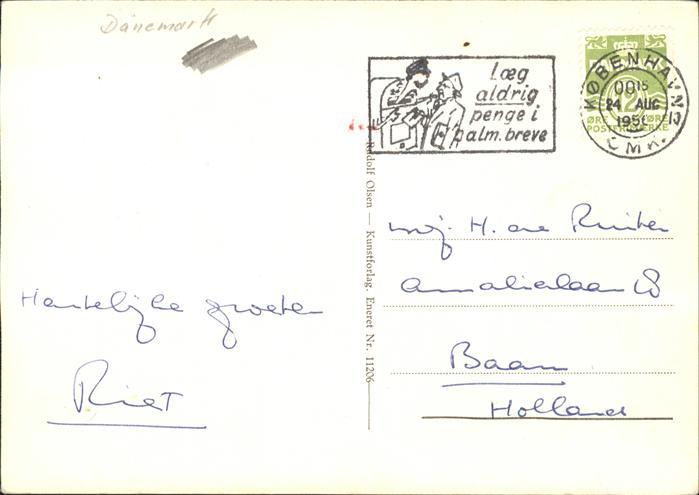 Dänemark
Læg
aldrig
penge i
alm. breve
KØBENHAVN
OMK.
00 15
24 AUG
195
12
ØRE ØRE
POSTFRIMÆRKE
Rudolf Olsen — Kunstforlag. Eneret Nr. 11206
Hartelijke groeten
Riet
mej. H. de Ruiter
Amalialaan
Baarn
Holland